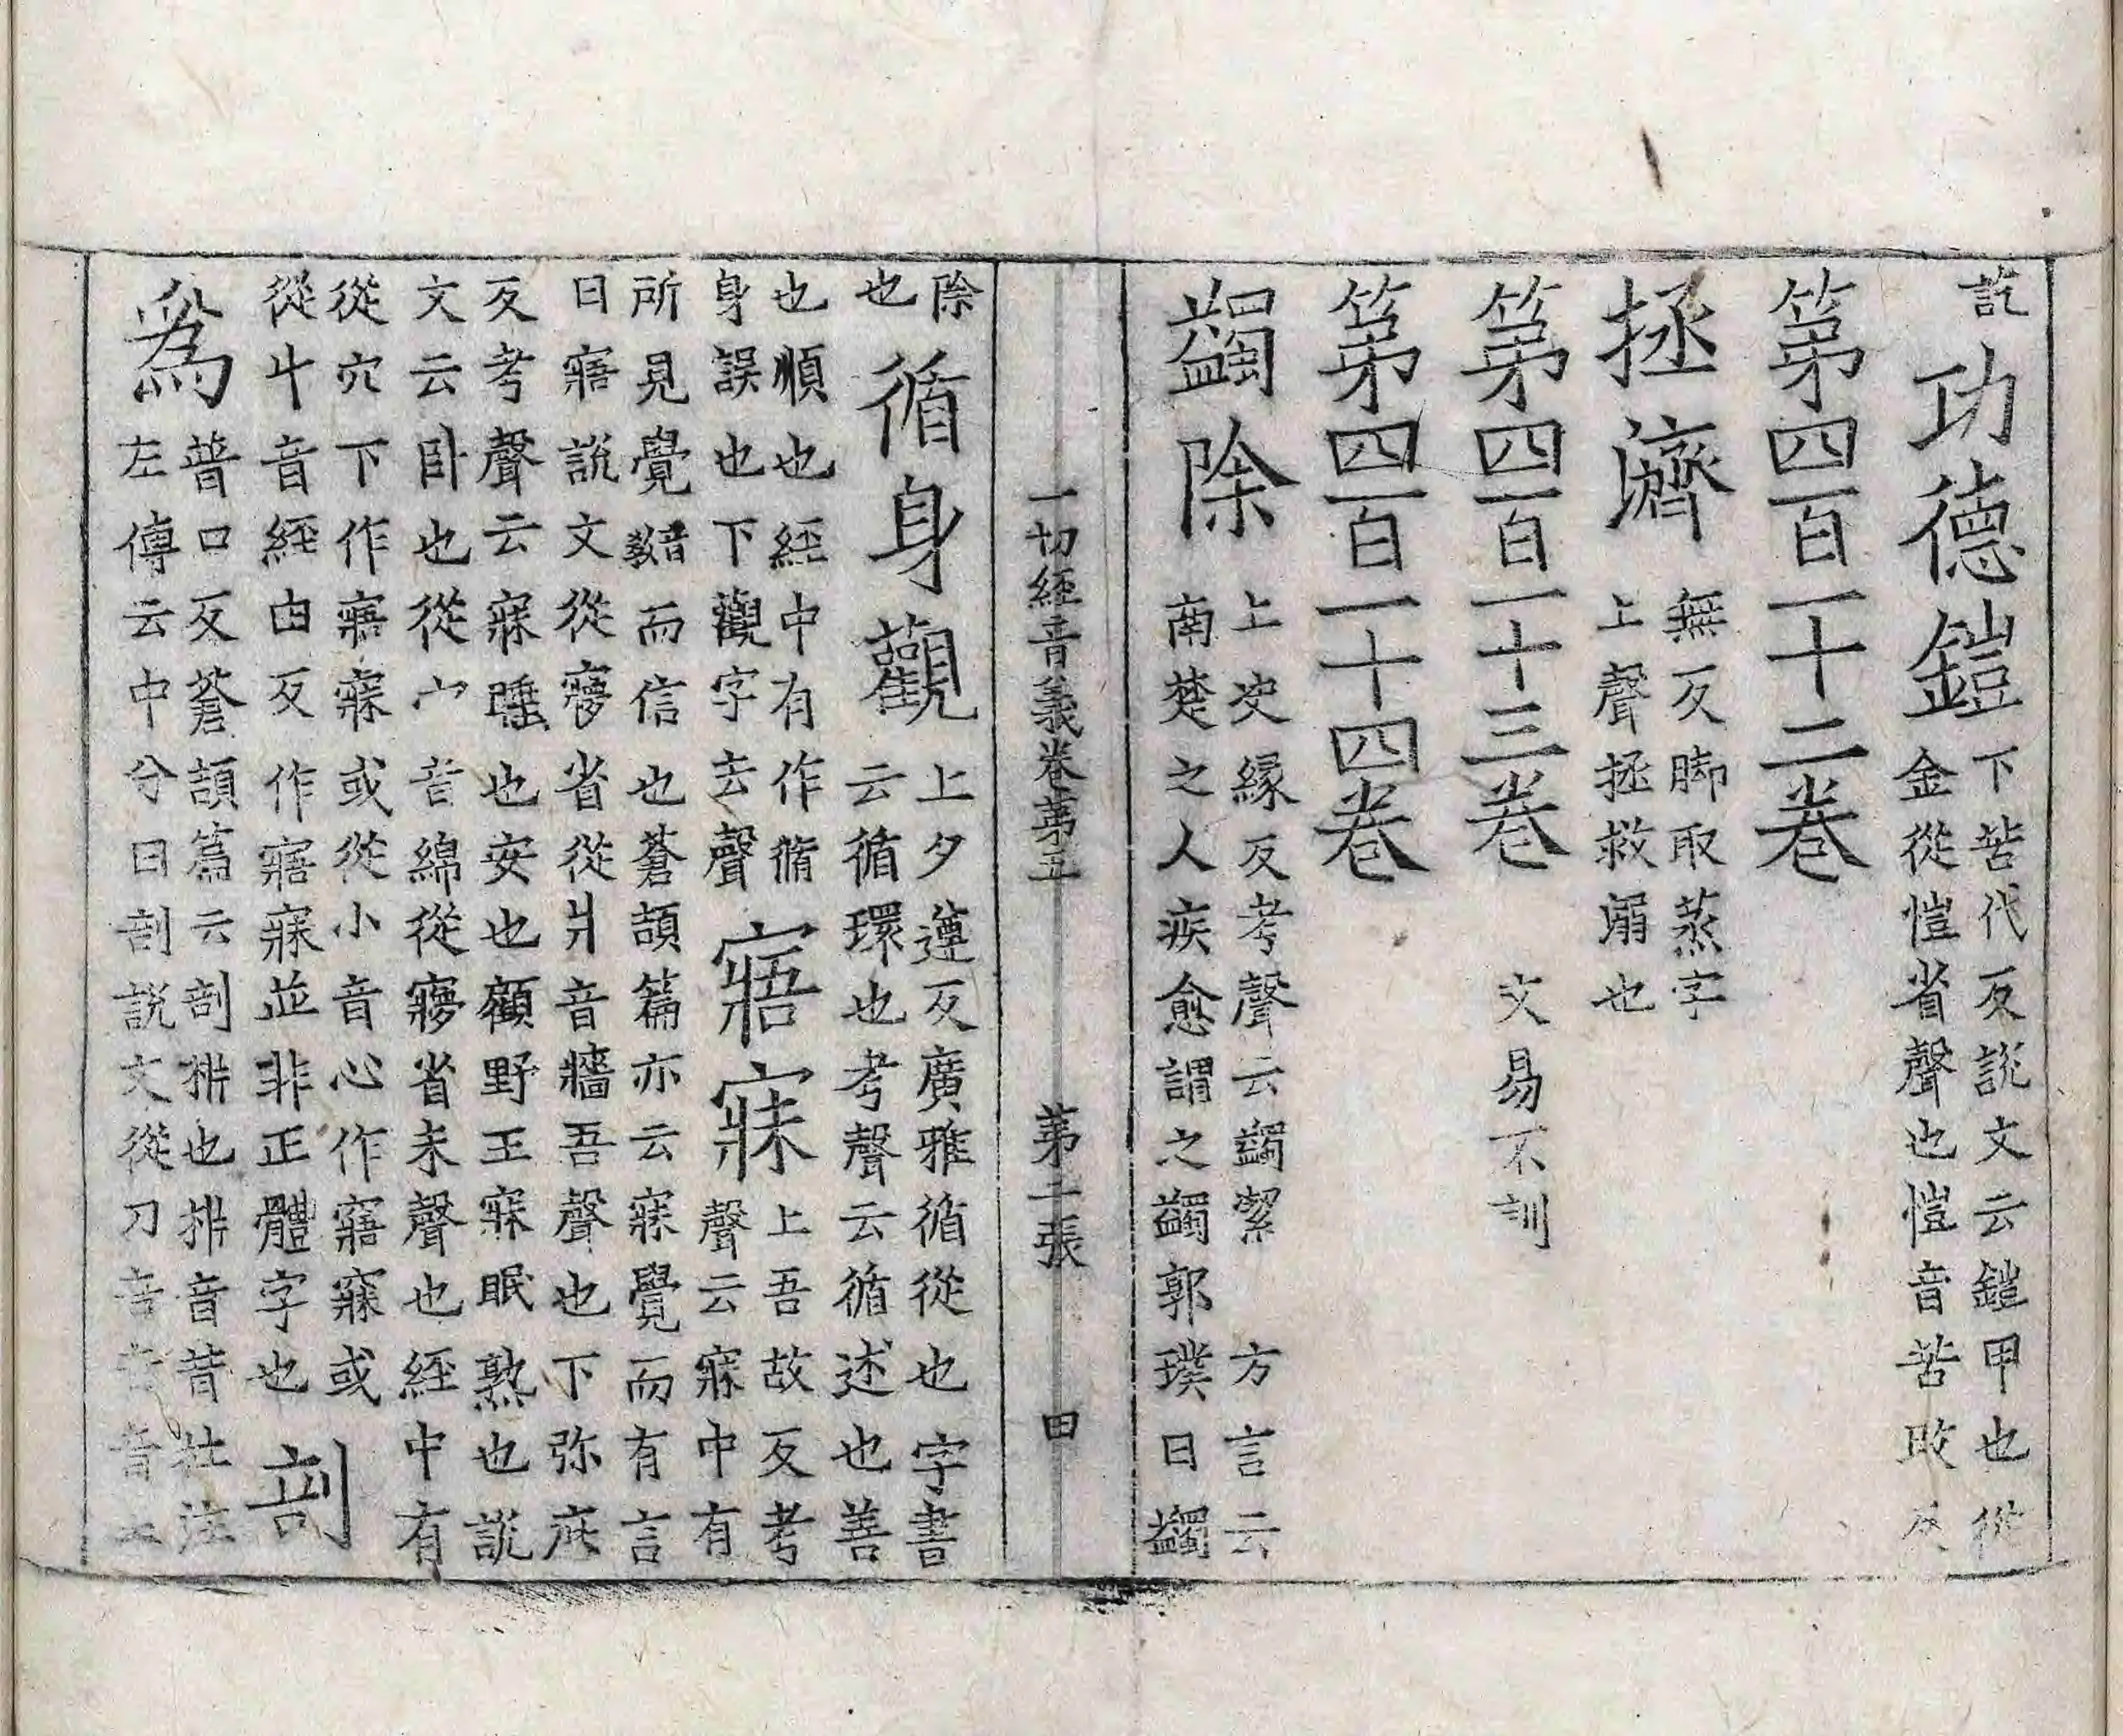 訖功德鎧下苦代反說文云鎧甲也從
金從愷省聲也愷音苦改反
第四百一十二卷
拯濟無反脚取蒸字
上聲拯救溺也
第四百一十三卷 文易不訓
第四百一十四卷
蠲除上决緣反考聲云蠲潔 方言云
南楚之人疾愈謂之蠲郭璞曰蠲
一切經音義卷第五 第二張 田
除
也循身觀上夕遵反廣雅循從也字書
云循環也考聲云循述也善
也順也經中有作脩
身誤也下觀字去聲寤寐上吾故反考
聲云寐中有
所見覺音教而信也蒼頡篇亦云寐覺而有言
曰寤說文從㝱省從爿音牆吾聲也下弥庇
反考聲云寐睡也安也顧野王寐眠熟也說
文云卧也從宀音綿從㝱省未聲也經中有
從穴下作寤寐或從小音心作寤寐或
從忄音經由反作寤寐並非正體字也剖
為普口反蒼頡篇云剖㭊也㭊音昔杜注
左傳云中分曰剖說文從刀音